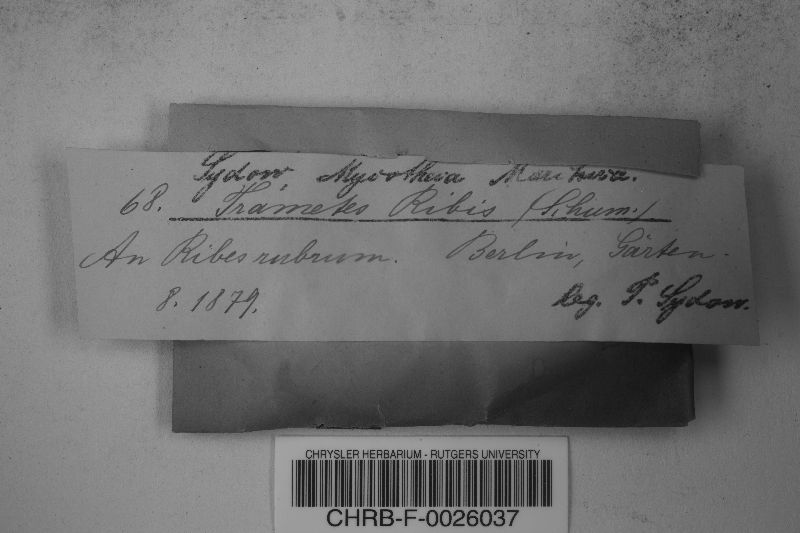 Sydow Mycotheca Marchica.
68. Trametes Ribis (Schum.)
An Ribes rubrum. Berlin, Gärten.
8. 1879. leg. P. Sydow.
CHRYSLER HERBARIUM - RUTGERS UNIVERSITY
CHRB-F-0026037